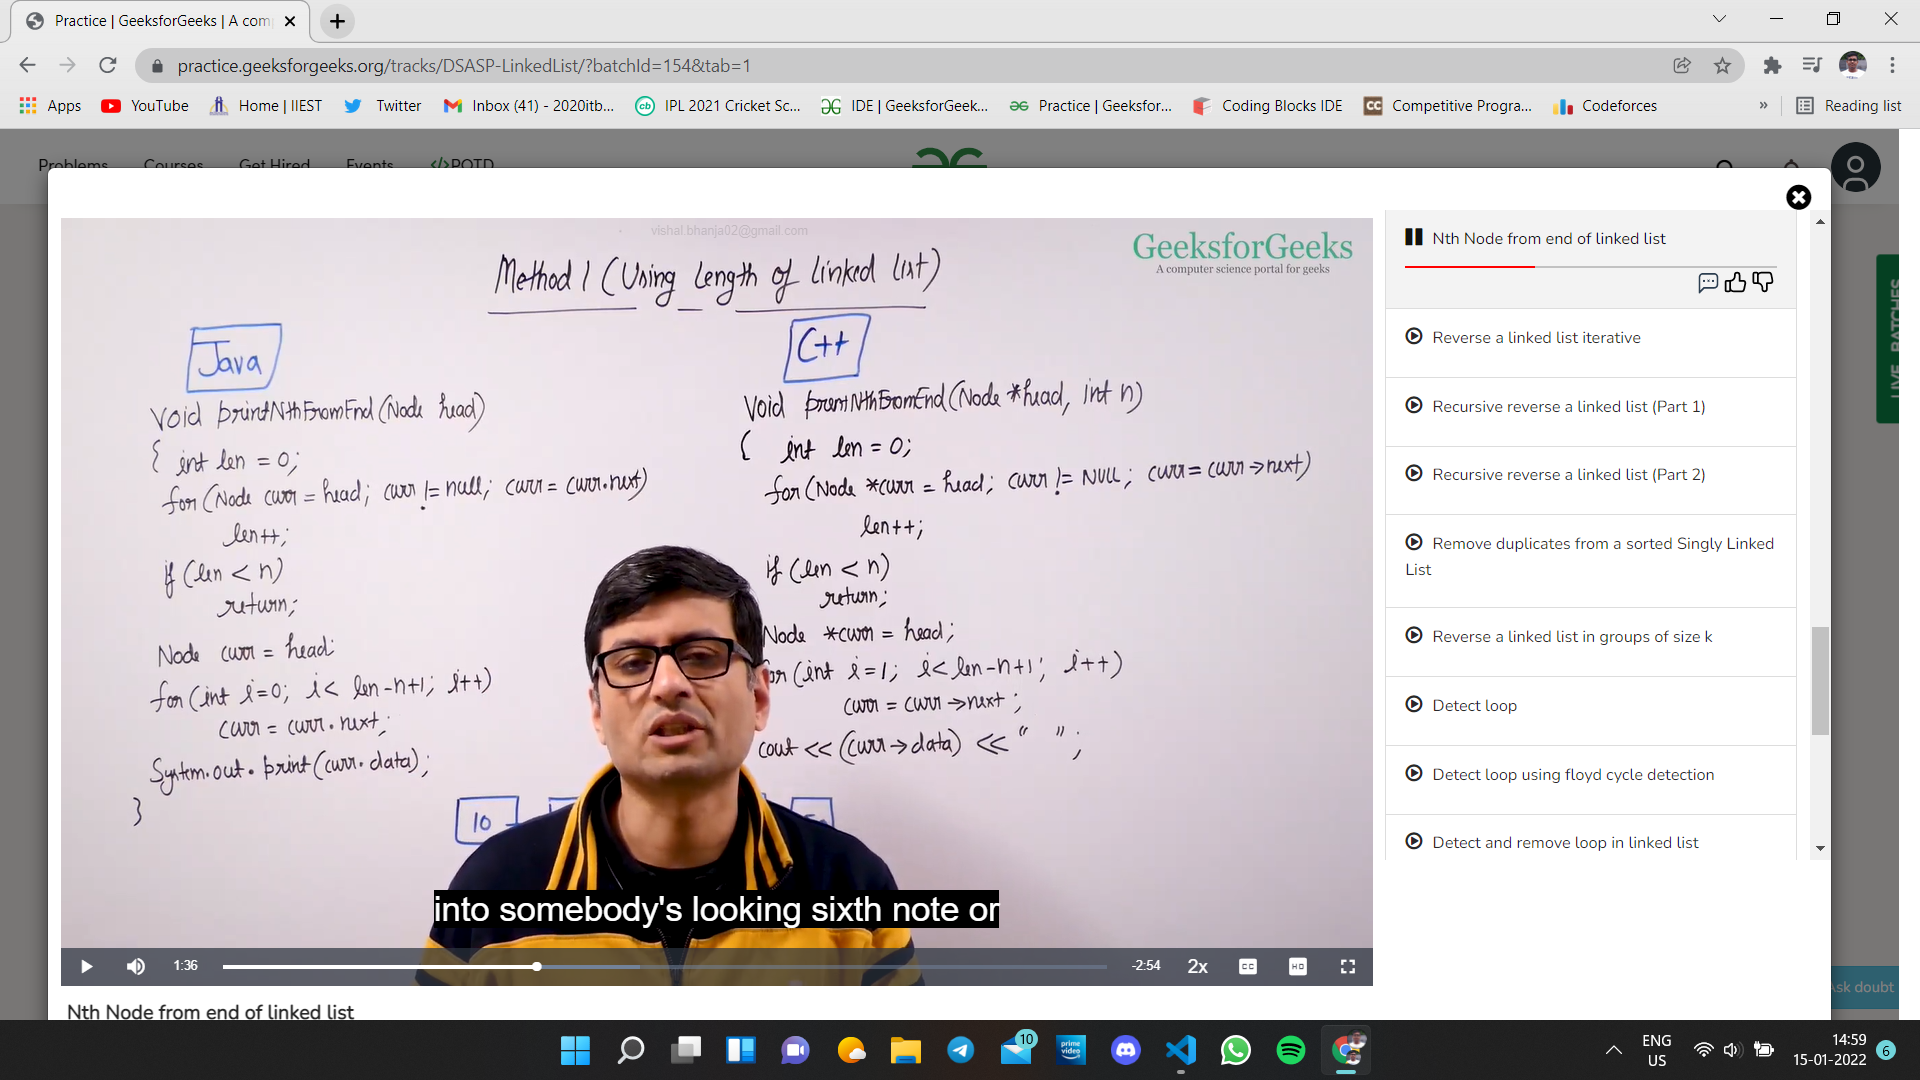 Practice | GeeksforGeeks | A com
practice.geeksforgeeks.org/tracks/DSASP-LinkedList/?batchId=154&tab=1
Apps YouTube Home | IIEST Twitter Inbox (41) - 2020itb... IPL 2021 Cricket Sc... IDE | GeeksforGeek... Practice | Geeksfor... Coding Blocks IDE Competitive Progra... Codeforces » Reading list
Problems Courses Get Hired Events </>POTD
vishal.bhanja02@gmail.com
GeeksforGeeks
A computer science portal for geeks
Method 1 (Using Length of linked list)
Java
void printNthFromEnd(Node head)
{ int len = 0;
for(Node curr = head; curr != null; curr = curr.next)
len++;
if (len < n)
return;
Node curr = head;
for(int i=0; i< len-n+1; i++)
curr = curr.next;
System.out.print(curr.data);
}
C++
void printNthFromEnd(Node *head, int n)
{ int len = 0;
for(Node *curr = head; curr != NULL; curr = curr->next)
len++;
if (len < n)
return;
Node *curr = head;
for(int i=1; i<len-n+1; i++)
curr = curr->next;
cout << (curr->data) << " ";
10
into somebody's looking sixth note or
1:36 -2:54 2x CC HD
Nth Node from end of linked list
Nth Node from end of linked list
Reverse a linked list iterative
Recursive reverse a linked list (Part 1)
Recursive reverse a linked list (Part 2)
Remove duplicates from a sorted Singly Linked
List
Reverse a linked list in groups of size k
Detect loop
Detect loop using floyd cycle detection
Detect and remove loop in linked list
LIVE BATCHES
Ask doubt
10
prime video
ENG
US
14:59
15-01-2022
6